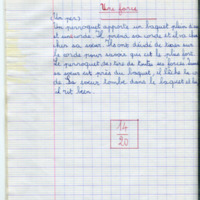 Une farce
(Un per)
Un perroquet apporte un baquet plein d'eau
et incorde. Il prend sa corde et il va cher
cher sa sœur. Ils ont décidé de tirer sur
la corde pour savoir qui est le plus fort.
Le perroquet de tire de toutes ses forces
sa sœur est près du baquet, il lâche la corde
Sa sœur tombe dans le baquet et
il rit bien.
14
20